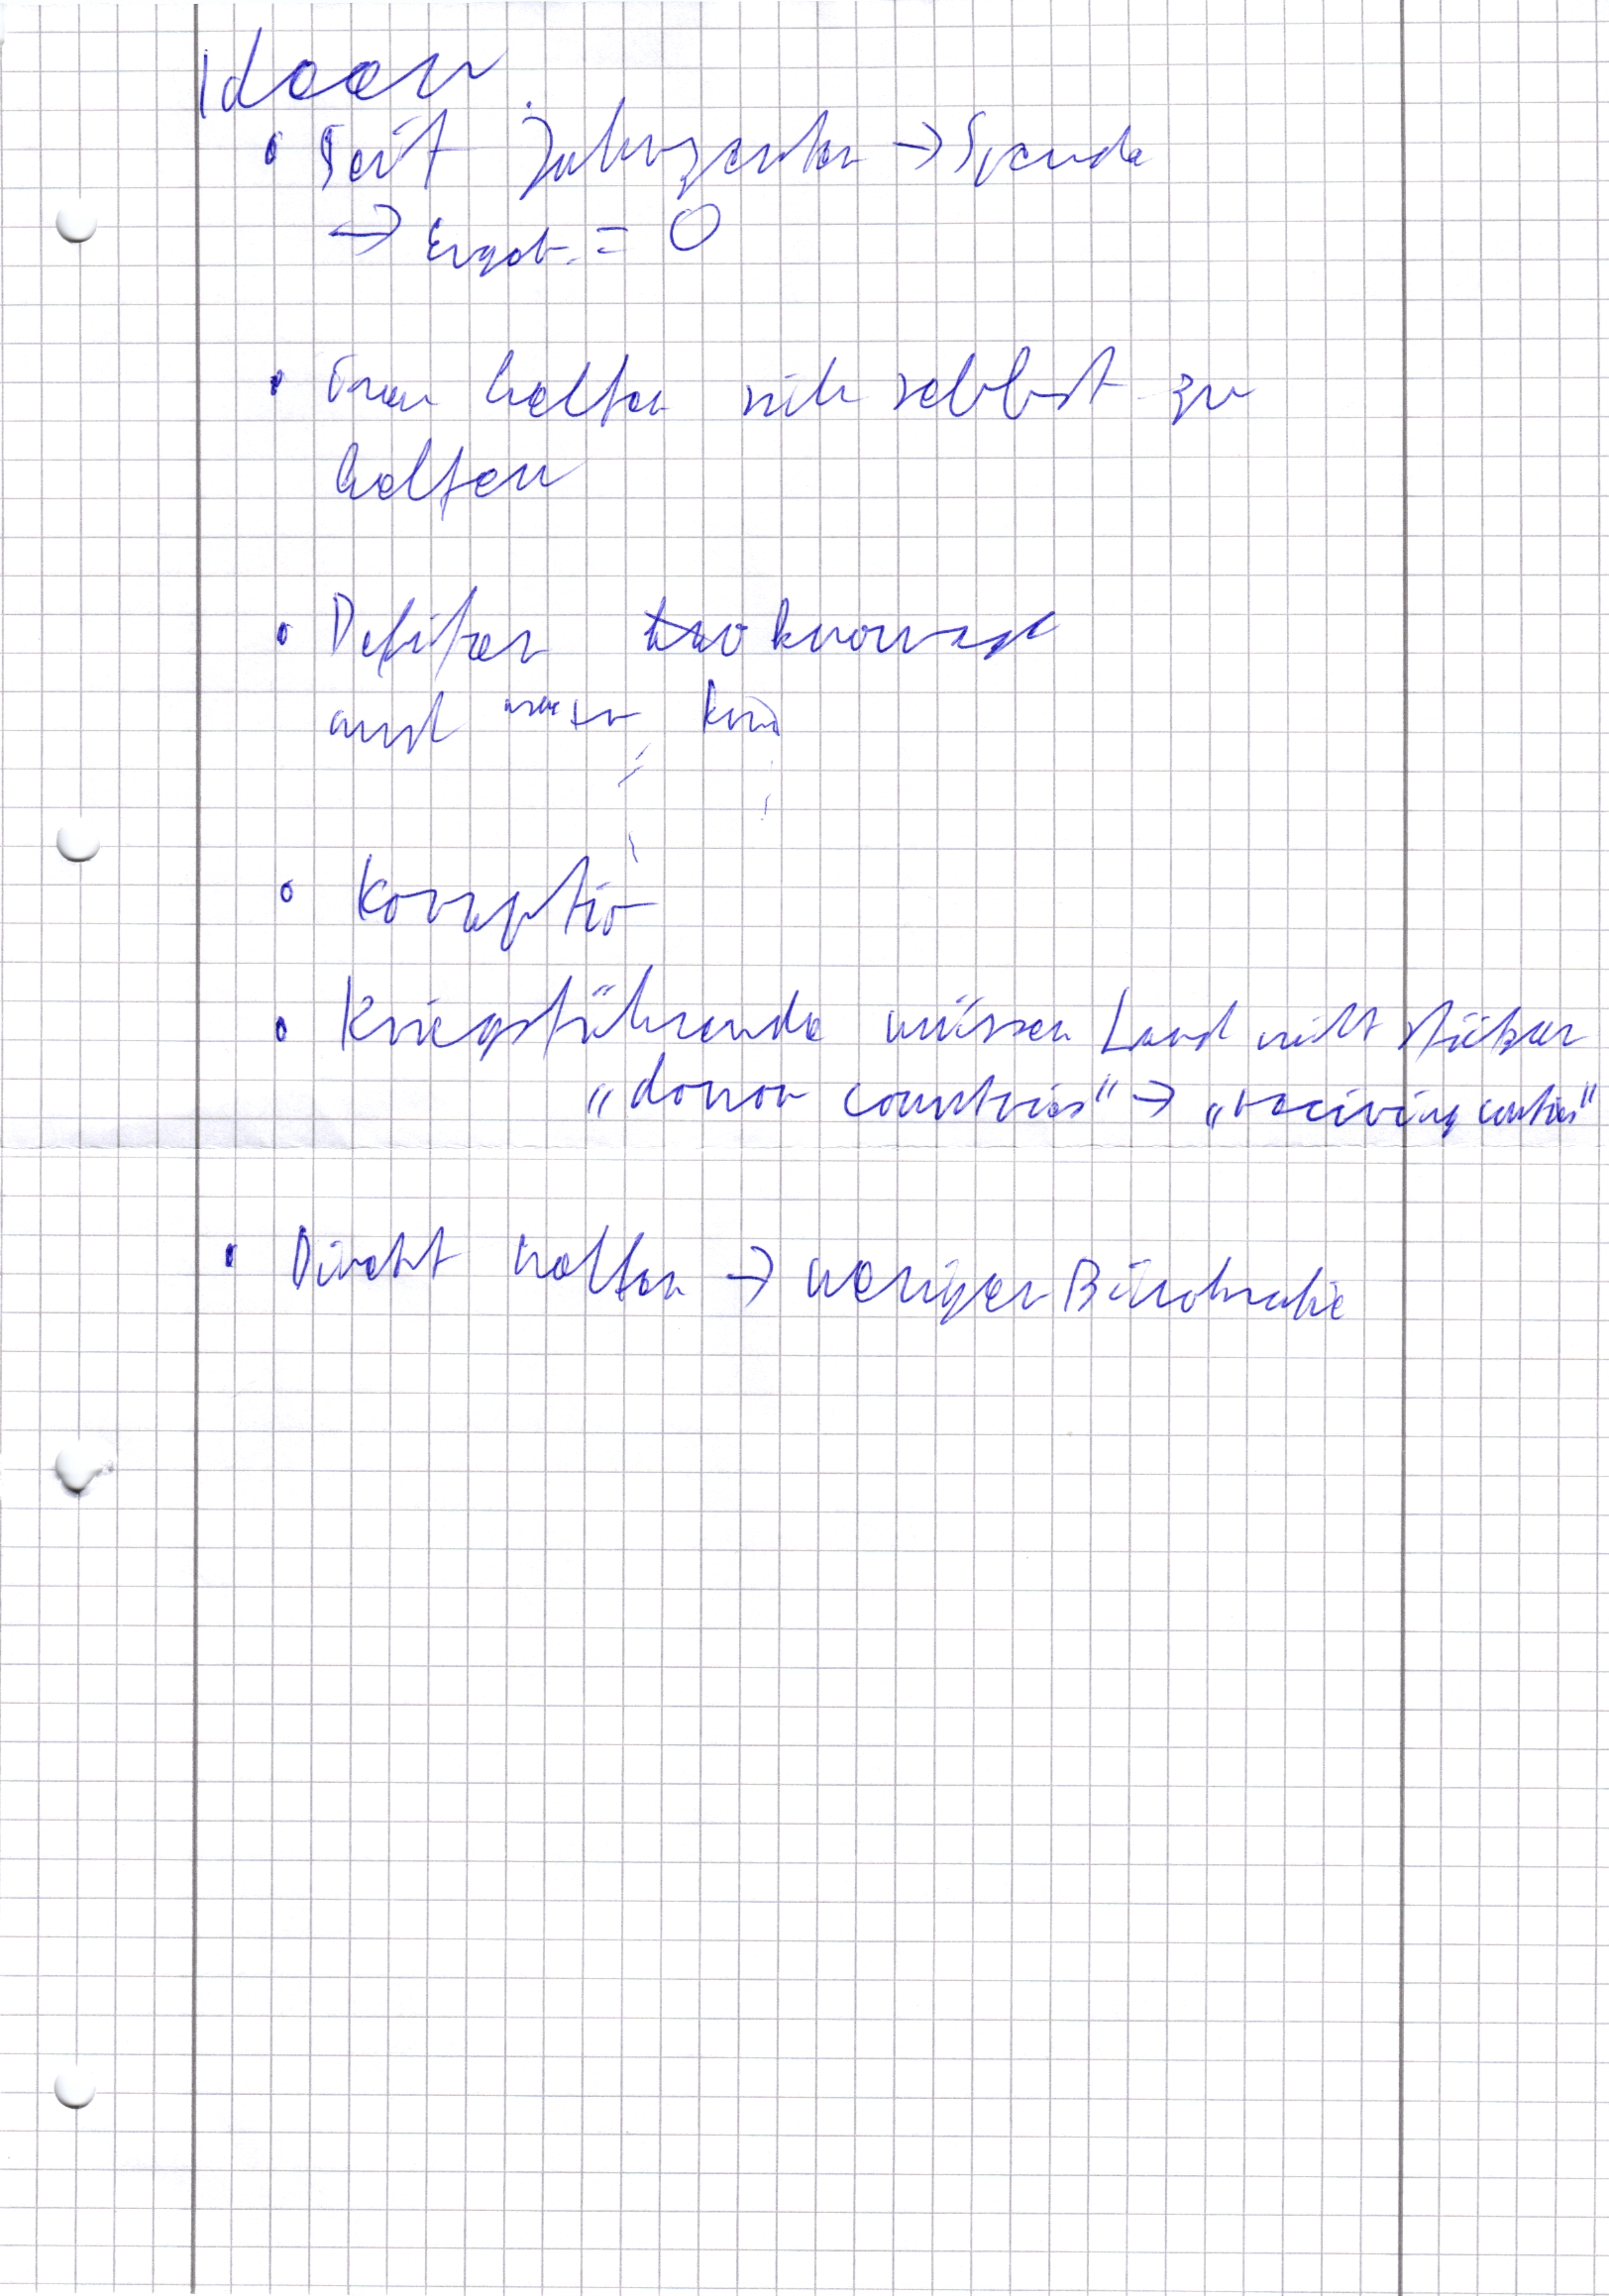 Ideen
• Seit Jahrzenten → Spende
→ Ergeb. = 0
• helfen sich selbst zu
helfen
• Defizite know
and
• Korruptio
• Kriegsführende müssen Land nicht stützen
„donor countries“ → „reciving countries“
• Direkt helfen → weniger Bürokratie